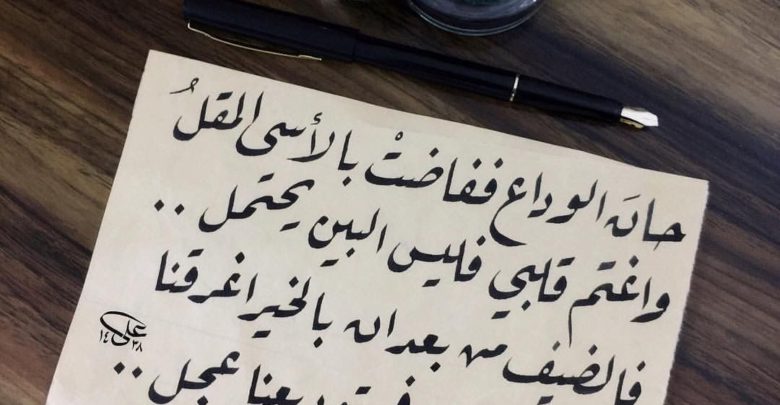 حانَ الوداع ففاضتْ بالأسى المقلُ
واغتم قلبي فليس البين يحتمل ..
فالضيف من بعد ان بالخير اغرقنا
توديعنا عجل ..
علي
١٤٣٨